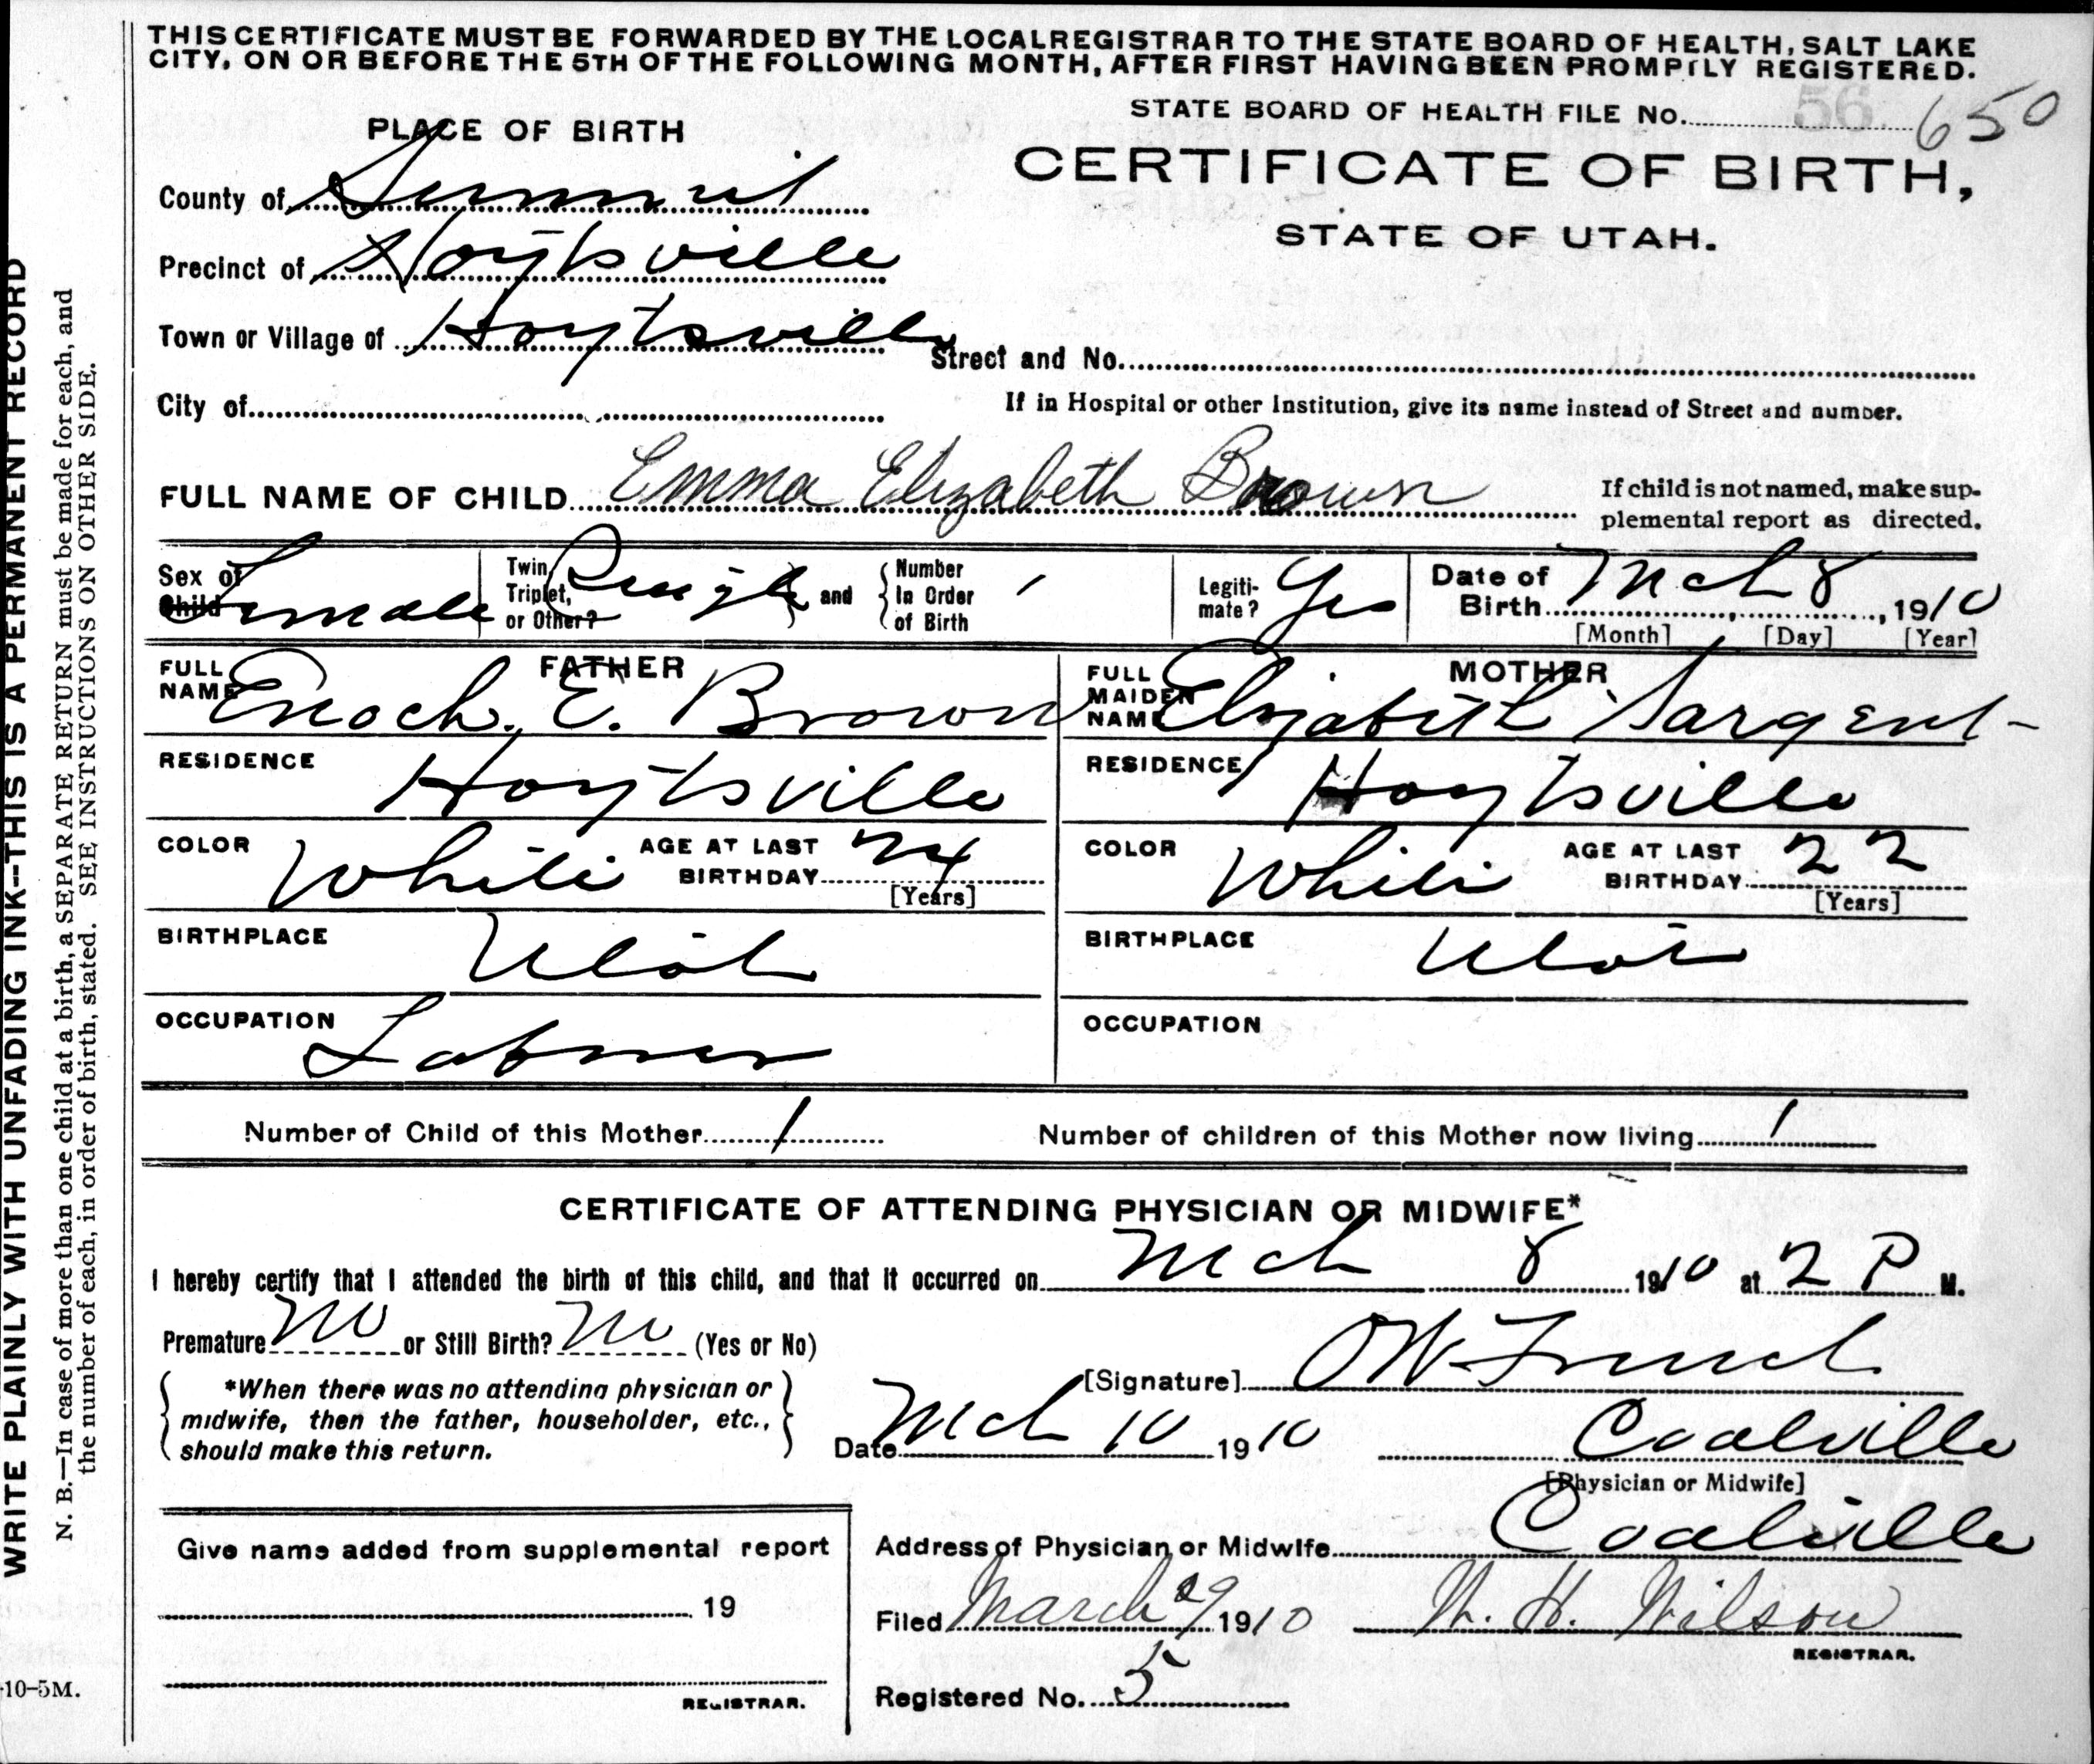 THIS CERTIFICATE MUST BE FORWARDED BY THE LOCAL REGISTRAR TO THE STATE BOARD OF HEALTH, SALT LAKE
CITY, ON OR BEFORE THE 5TH OF THE FOLLOWING MONTH, AFTER FIRST HAVING BEEN PROMPTLY REGISTERED.
STATE BOARD OF HEALTH FILE No. 56 650
PLACE OF BIRTH
CERTIFICATE OF BIRTH,
STATE OF UTAH.
County of Summit
Precinct of Hoytsville
Town or Village of Hoytsville
Street and No.
City of
If in Hospital or other Institution, give its name instead of Street and number.
FULL NAME OF CHILD Emma Elizabeth Brown
If child is not named, make sup-
plemental report as directed.
Sex of Child Female
Twin, Triplet, or Other? Single and Number In Order of Birth 1
Legiti-mate? Yes
Date of Birth Mch 8, 1910
[Month] [Day] [Year]
FATHER
FULL NAME Enoch. E. Brown
RESIDENCE Hoytsville
COLOR White AGE AT LAST BIRTHDAY 24
[Years]
BIRTHPLACE Utah
OCCUPATION Laborer
MOTHER
FULL MAIDEN NAME Elizabeth Sargent
RESIDENCE Hoytsville
COLOR White AGE AT LAST BIRTHDAY 22
[Years]
BIRTHPLACE Utah
OCCUPATION
Number of Child of this Mother 1
Number of children of this Mother now living 1
CERTIFICATE OF ATTENDING PHYSICIAN OR MIDWIFE*
I hereby certify that I attended the birth of this child, and that it occurred on Mch 8 1910 at 2 P M.
Premature No or Still Birth? No (Yes or No)
*When there was no attending physician or
midwife, then the father, householder, etc.,
should make this return.
[Signature] O W French
Date Mch 10 1910 Coalville
[Physician or Midwife]
Give name added from supplemental report
19
REGISTRAR.
Address of Physician or Midwife Coalville
Filed March 29 1910 W. H. Wilson
REGISTRAR.
Registered No. 5
WRITE PLAINLY WITH UNFADING INK--THIS IS A PERMANENT RECORD
N. B.—In case of more than one child at a birth, a SEPARATE RETURN must be made for each, and
the number of each, in order of birth, stated. SEE INSTRUCTIONS ON OTHER SIDE.
10-5M.